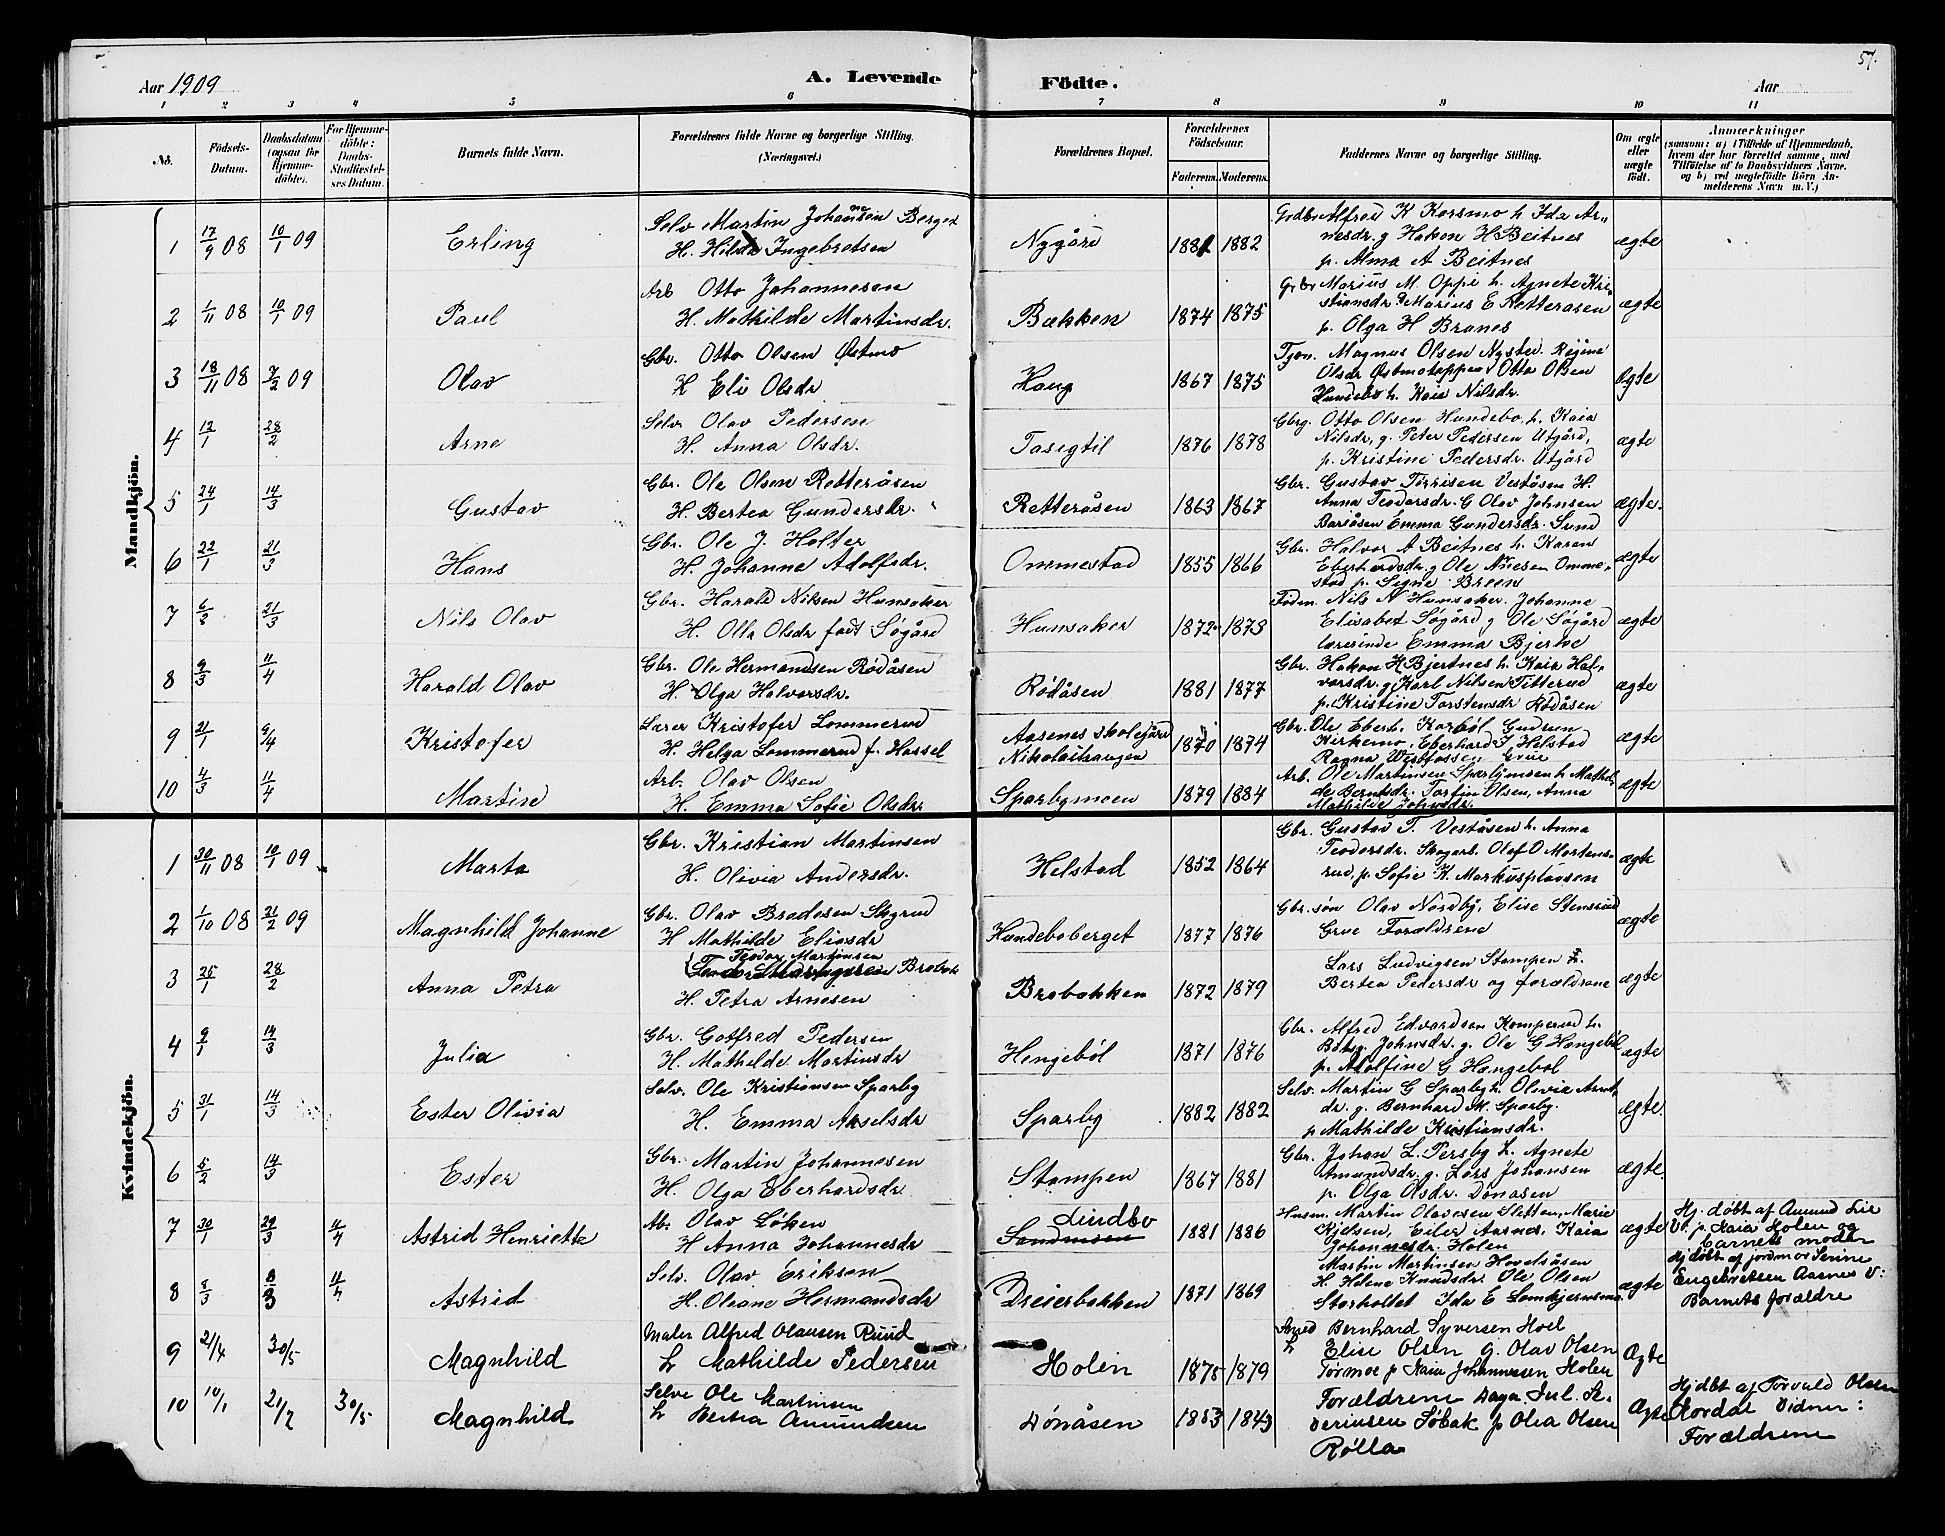 57.
Aar 1909
A. Levende Födte.
Aar
1 2 3 4 5 6 7 8 9 10 11
No.
Födsels-Datum.
Daabsdatum (ogsaa for Hjemme-döbte).
For Hjemme-döbte: Daabs-Stadfæstel-ses Datum.
Barnets fulde Navn.
Forældrenes fulde Navne og borgerlige Stilling. (Næringsvei.)
Forældrenes Bopæl.
Forældrenes Födselsaar.
Faderens. Moderens.
Faddernes Navne og borgerlige Stilling.
Om ægte eller uægte födt.
Anmærkninger
(saasom: a) i Tilfælde af Hjemmedaab, hvem der har forrettet samme, med Tilföielse af to Daabsvidners Navne, og b) ved uægtefödte Börn Anmelderens Navn m. V.)
Mandkjön.
1 17/9 08 10/1 09 Erling
Selv Martin Johansen Berget
H. Hilda Ingebretsen
Nygård 1881 1882
Grdbr Alfred K Korsmo h. Ida Ar-
nesdr. g Hakon H Beitnes
p. Alma A Beitnes
ægte
2 1/11 08 10/1 09 Paul
Arb Otto Johannesen
H. Mathilde Martinsdr.
Bækken 1874 1875
Gbr Marius M. Oppi h. Agnete Kri-
stiansdr. Marius E Retteråsen
p. Olga H Branes
ægte
3 18/11 08 7/2 09 Olav
Gbr. Otto Olsen Østmo
H Eli Olsdr
Haug 1867 1875
Tjen. Magnus Olsen Nysted. Regine
Olsdr Østmotoppen, Otto Olsen
Hundebo h. Kaia Nilsdr.
Ægte
4 12/1 28/2 Arne
Selv. Olav Pedersen
H. Anna Olsdr.
Tasigtil 1876 1878
Gbrg. Otto Olsen Hundebo, h. Kaia
Nilsdr, g. Peter Pedersen Utgård,
p. Kristine Pedersdr. Utgård
ægte
5 24/1 14/3 Gustav
Gbr. Ole Olsen Retteråsen
H. Bertea Gundersdr.
Retteråsen 1863 1867
Gbr. Gustav Torrisen Veståsen H.
Anna Teodorsdr. G Olav Johnsen
Bariåsen Emma Gundersdr. Sund
ægte.
6 22/1 21/3 Hans
Gbr. Ole J. Holter
H. Johanne Adolfsdr.
Ommestad 1855 1866
Gbr. Halvor A Beitnes h. Karen
Eberhardsdr. g Ole Nilsen Omme-
stad p. Signe Breen
ægte
7 6/2 21/3 Nils Olav
Gbr. Harald Nilsen Hunsaker
H. Olla Olsdr født Søgård
Hunsaker 1872 1873
Fodm. Nils N Hunsaker. Johanne
Elisabet Søgård g Ole Søgård
lærerinde Emma Bjerke
ægte
8 9/3 11/4 Harald Olav
Gbr. Ole Hermandsen Rødåsen
H. Olga Halvorsdr.
Rødåsen 1881 1877
Gbr. Hakon H Bjertnes h. Kaia Hal-
vorsdr. g Karl Nilsen Titterud
p. Kristine Torstensdr Rødåsen
ægte
9 21/1 9/4 Kristofer
Lærer Kristofer Lommerud
H. Helga Lommerud f. Hassel
Aarenes skolegård
Nikolaihaugen 1870 1874
Gbr. Ole Eberh. Karbøl Gudrun
Kirkemo, Eberhard I Helstad
Ragna Westfossen Grue
ægte
10 4/3 11/4 Martin
Arb. Olav Olsen
H. Emma Sofie Olsdr.
Sparbymoen 1879 1884
Arb. Ole Martinsen Sparbymoen h. Mathil-
de Berntsdr. Torfin Olsen, Anna
Mathilde Johnsdr.
ægte
Kvindekjön.
1 30/11 08 10/1 09 Marta
Gbr. Kristian Martinsen
H. Olivia Andersdr.
Helstad 1852 1864
Gbr. Gustav T. Veståsen h. Anna
Teodorsdr. Skogarb. Olaf O Martens-
rud, p. Sofie K. Markusplassen
ægte
2 1/10 08 21/2 09 Magnhild Johanne
Gbr. Olav Bredesen Skyrud
H Mathilde Eliasdr
Hundeboberget 1877 1876
Gbr. søn Olav Nordby, Elise Stensrud
Grue Forældrene
ægte
3 25/1 28/2 Anna Petra
Teodor Martinsen Brobak
H. Petra Arnesen
Brobakken 1872 1879
Lars Ludvigsen Stampen h.
Bertea Pedersdr og forældrene
ægte
4 9/1 14/3 Julia
Gbr. Gotfred Pedersen
H. Mathilde Martinsdr
Hengebøl 1871 1876
Gbr. Alfred Edvardsen Kamperud h.
Johnsdr. g. Ole G Hengebøl
p. Adolfine G Hengebøl
ægte
5 31/1 14/3 Ester Olivia
Selv. Ole Kristiansen Sparby
H. Emma Akselsdr
Sparby 1882 1882
Selv. Martin G Sparby h. Olivia Arnt-
dr. g. Bernhard M. Sparby.
p Mathilde Kristiansdr.
ægte
6 5/2 14/3 Ester
Gbr. Martin Johannesen
H. Olga Eberhardsdr
Stampen 1867 1881
Gbr. Johan L. Persby h. Agnete
Amundsdr g. Lars Johansen
p. Olga Olsdr. Dønåsen
ægte
7 30/1 29/3 11/4 Astrid Henriette
Ab. Olav Løken
H Anna Johannesdr
Lindbo
Sandmoen 1881 1886
Husm. Martin Olavesen Sletten, Marie
Kjelsen, Eiler Aarnes, Kaia
Johannesdr. Holen
ægte
Hj. døbt af Amund Lie
V. p. Kaia Holen og
barnets moder
8 5/3 8/3 11/4 Astrid
Selv. Olav Eriksen
H. Oliane Hermandsdr
Dreierbakken 1871 1869
Martin Martinsen Hovdåsen
H. Helene Knudsdr. Ole Olsen
Storholtet Ida E Lomkjernsmo
ægte
Hj døbt af jordmor Serine
Engebretsen Aarnes V:
Barnets forældre
9 2/4 30/5 Magnhild
Maler Alfred Olausen Ruud
h Mathilde Pedersen
Holen 1878 1879
Smed Bernhard Syversen Hoel
h Elise Olsen g. Olav Olsen
Tørmoe p Kaia Johannesen Holen
Ægte
10 10/1 21/2 30/5 Magnhild
Selve Ole Martinsen
h Bertea Amundsen
Dønåsen 1853 1843
Forældrene Dagn. Jul. Se-
verinsen Søbak p Olea Olsen
Rølla
Ægte
Hj døbt af Torvald Olsen
Nordal Vidner:
Forældrene